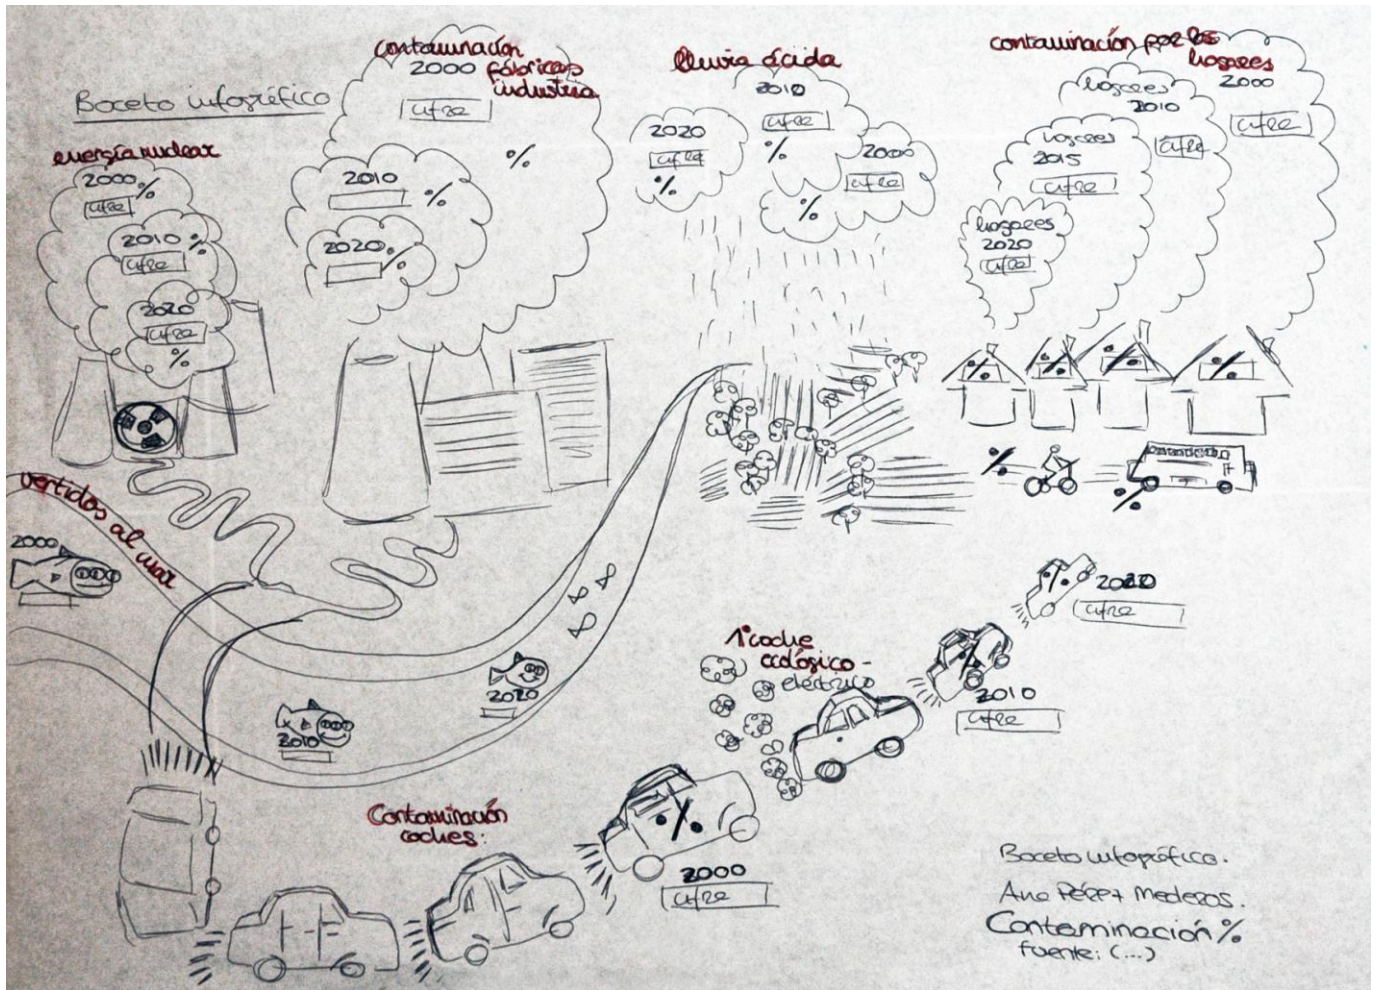 Boceto infográfico
energía nuclear
2000 %
cifra
2010 %
cifra
2020
cifra
%
contaminación
2000 fábricas
industria
cifra
%
2010
%
2020 %
lluvia ácida
2010
cifra
%
2020
cifra
%
2000
cifra
%
contaminación por los
hogares
2000
cifra
hogares
2010
cifra
hogares
2015
cifra
hogares
2020
cifra
%
%
%
%
%
%
vertidos al mar
2000
2010
2020
1º coche
ecológico -
eléctrico
%
2020
cifra
%
2010
cifra
Contaminación
coches:
%
2000
cifra
Boceto infográfico.
Ana Pérez Mederos.
Contaminación %
fuente: (...)